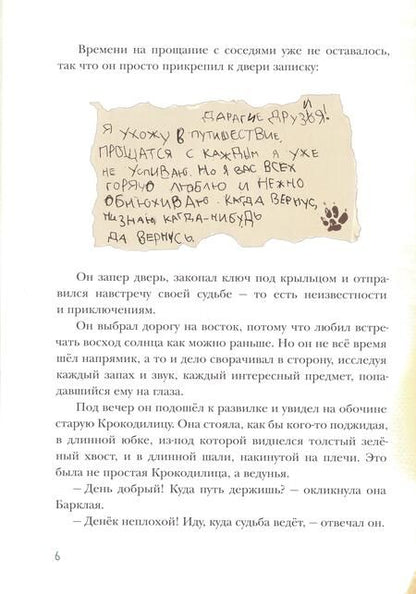 Времени на прощание с соседями уже не оставалось,
так что он просто прикрепил к двери записку:
ДАРАГИЕ ДРУЗЬЯ!
Й
Я УХОЖУ В ПУТИШЕСТВИЕ.
ПРОЩАТСЯ С КАЖДЫМ Я УЖЕ
НЕ УСПИВАЮ. НО Я ВАС ВСЕХ
ГОРЯЧО ЛЮБЛЮ И НЕЖНО
ОБНЮХИВАЮ. КАГДА ВЕРНУС,
НИЗНАЮ КАГДА-НИБУДЬ
ДА ВЕРНУСЬ.
Он запер дверь, закопал ключ под крыльцом и отпра-
вился навстречу своей судьбе — то есть неизвестности
и приключениям.
Он выбрал дорогу на восток, потому что любил встре-
чать восход солнца как можно раньше. Но он не всё время
шёл напрямик, а то и дело сворачивал в сторону, исследуя
каждый запах и звук, каждый интересный предмет, попа-
давшийся ему на глаза.
Под вечер он подошёл к развилке и увидел на обочине
старую Крокодилицу. Она стояла, как бы кого-то поджидая,
в длинной юбке, из-под которой виднелся толстый зелё-
ный хвост, и в длинной шали, накинутой на плечи. Это
была не простая Крокодилица, а ведунья.
— День добрый! Куда путь держишь? — окликнула она
Барклая.
— Денёк неплохой! Иду, куда судьба ведёт, — отвечал он.
6